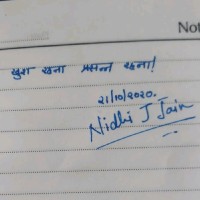 Not
खुश रहना प्रसन्न रहना!
21/10/2020.
Nidhi J Jain